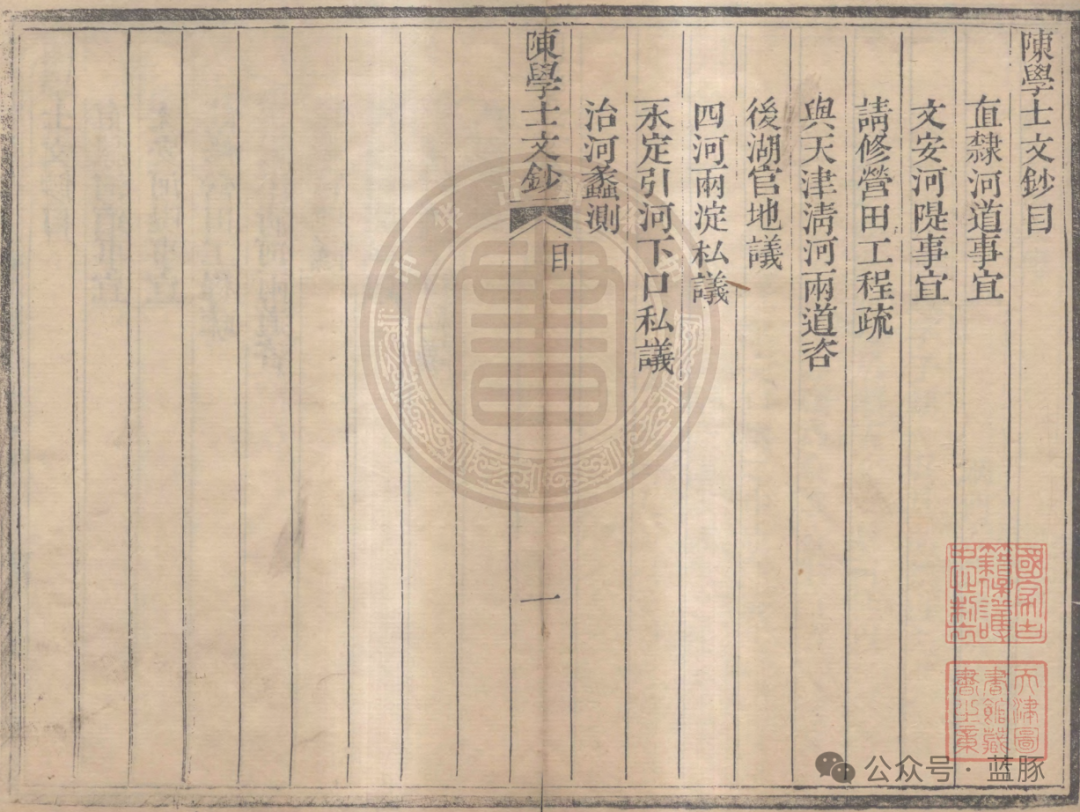 陳學士文鈔目
直隸河道事宜
文安河隄事宜
請修營田工程疏
與天津清河兩道咨
後湖官地議
四河兩淀私議
永定引河下口私議
治河蠡測
陳學士文鈔
目
一
國家古
籍保護
中心制
天津圖
書館藏
書之章
公众号·蓝豚